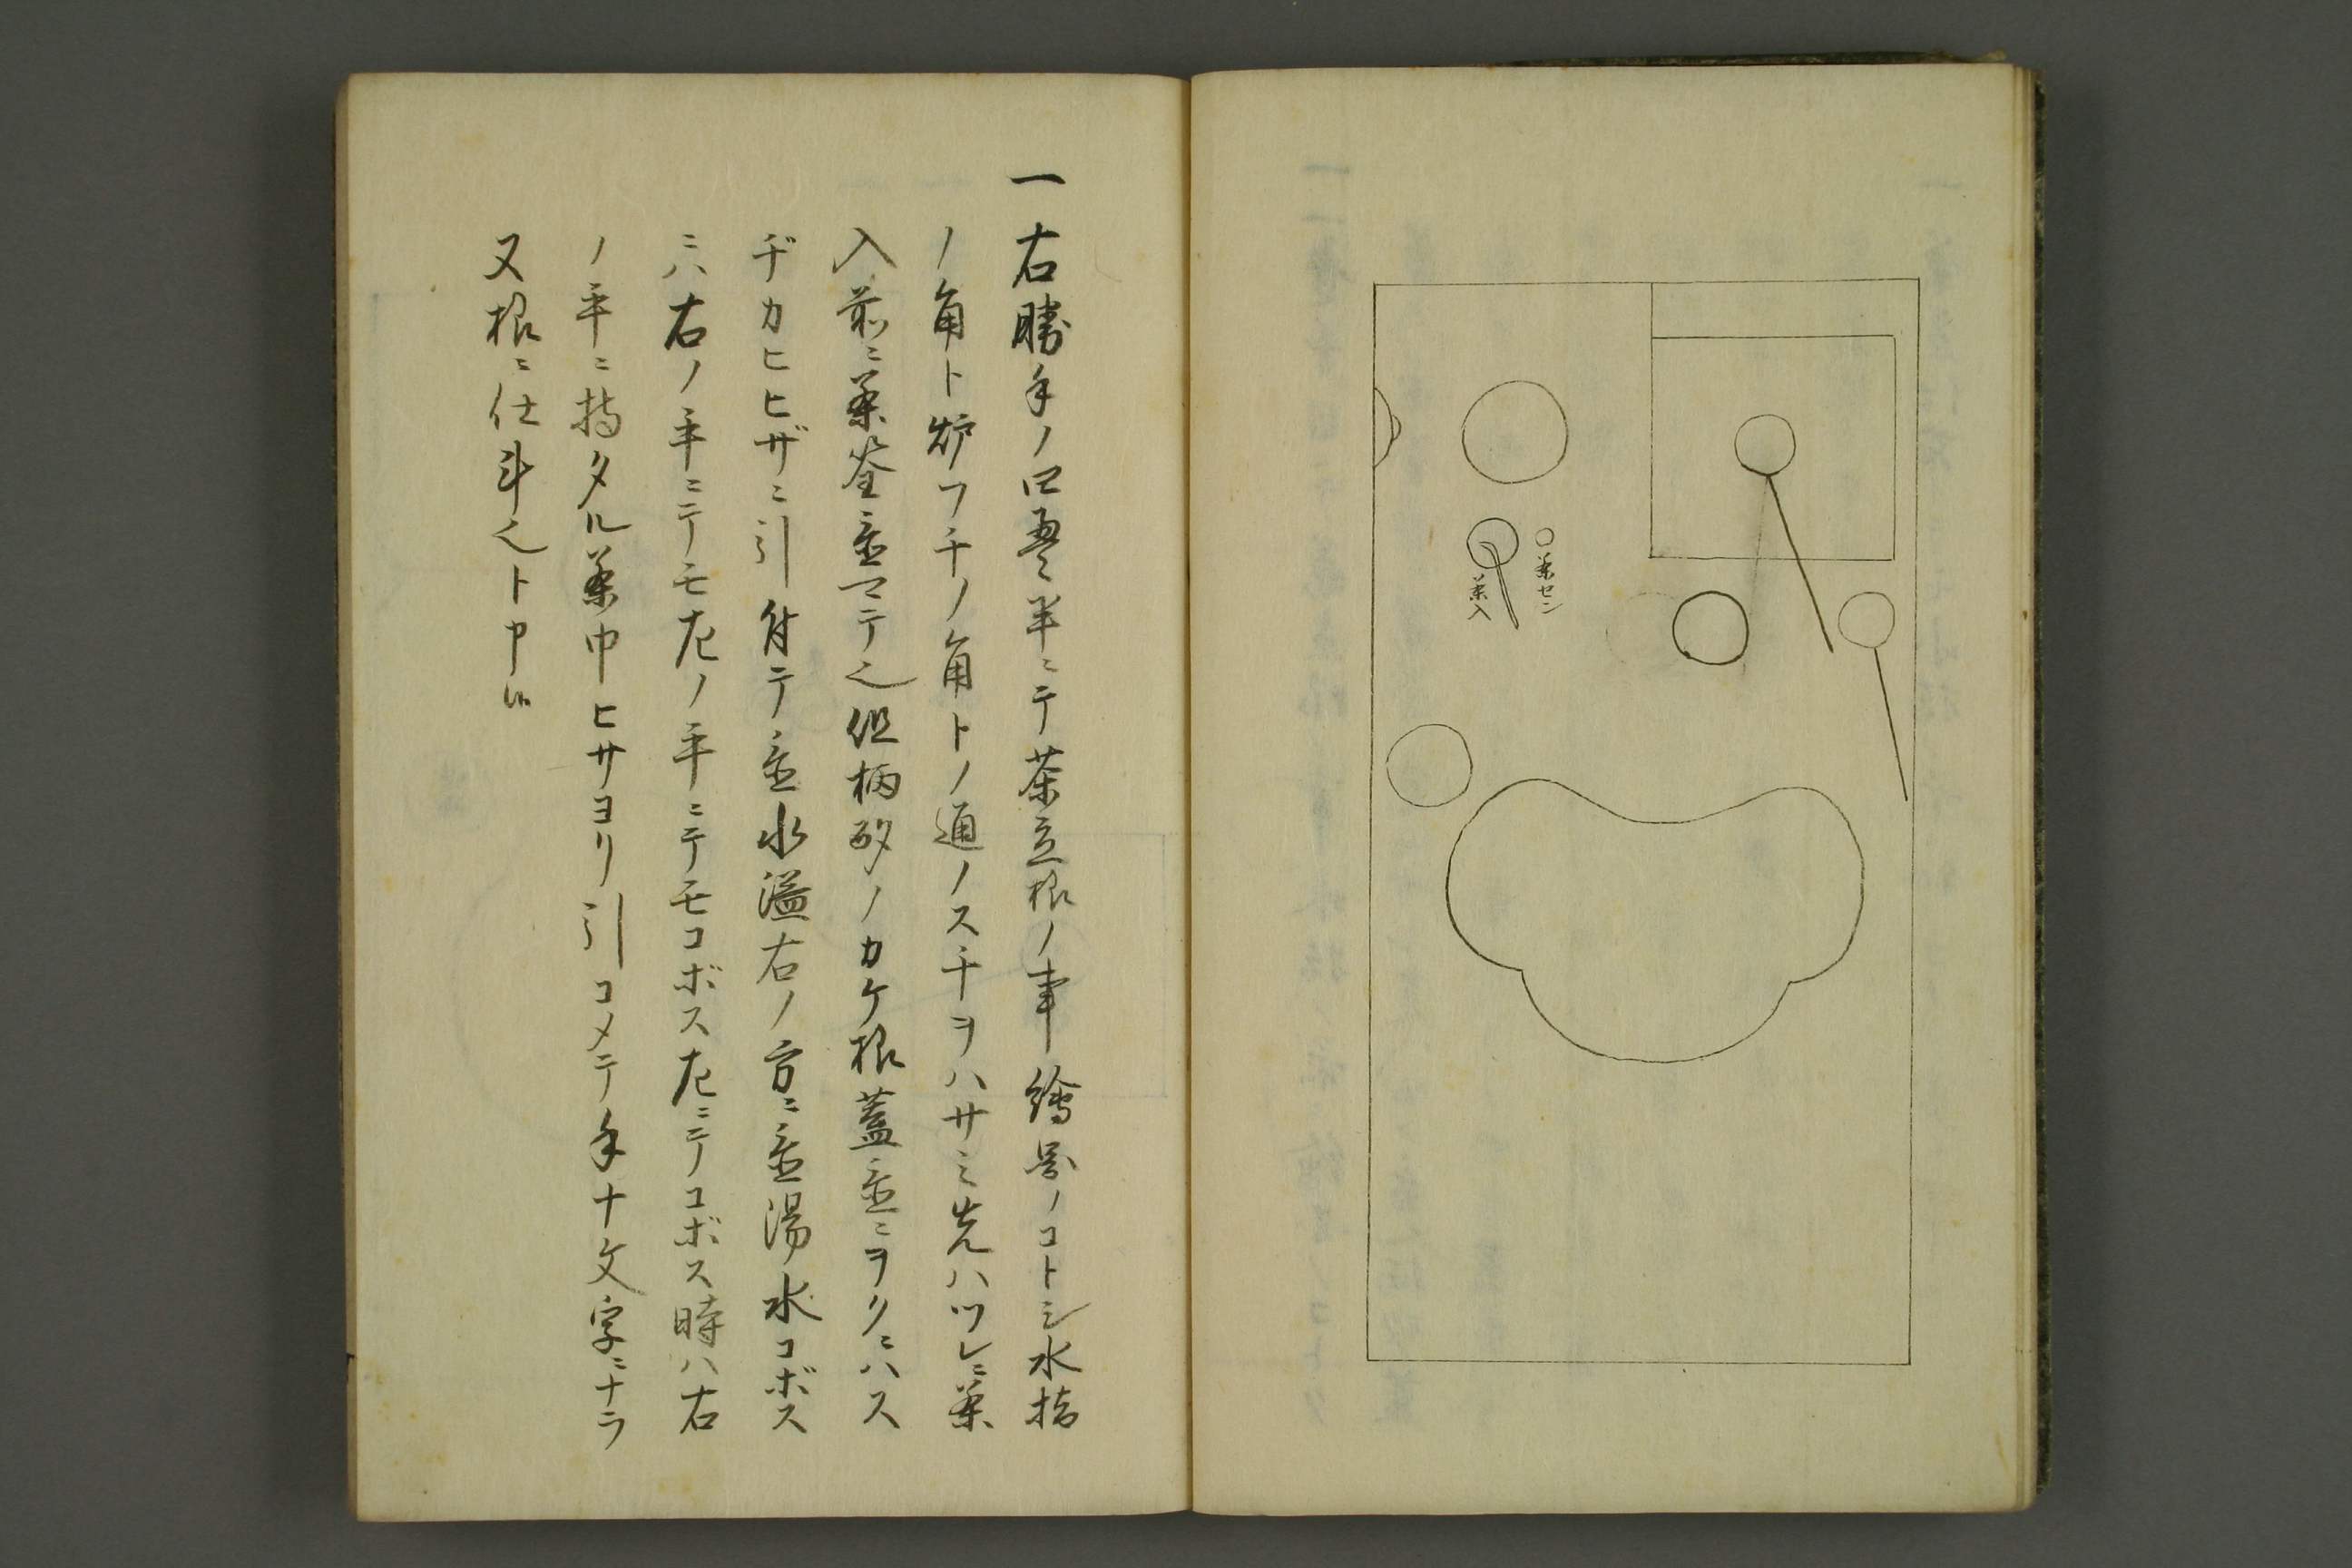 茶セン
茶入
一右勝手ノ四疊半ニテ茶立様ノ事繪圖ノコトシ水指
ノ角ト炉フチノ角トノ通ノスチヲハサミ先ハツレニ茶
入前ニ茶筌置マテ也但柄杓ノカケ様蓋置ニヲクニハス
ヂカヒヒザニ引付テ置水溢右ノ方ニ置湯水コボス
ニハ右ノ手ニテモ左ノ手ニテモコボス左ニテコボス時ハ右
ノ手ニ持タル茶巾ヒサヨリ引コメテ手十文字ニナラ
又様ニ仕斗也ト申候